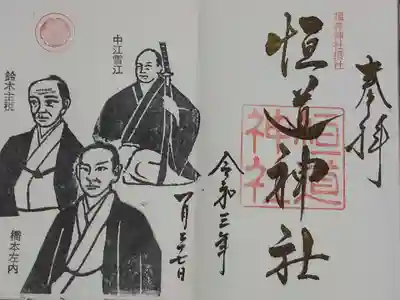 奉拝
福井神社摂社
恒道神社
恒道
神社
令和三年
中江雪江
鈴木主税
橋本左内